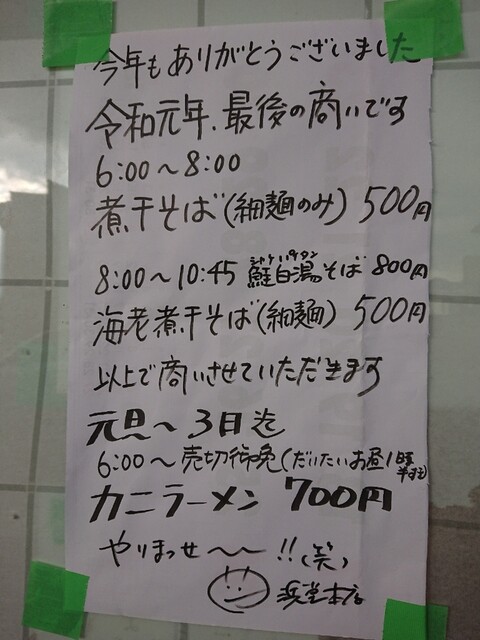 今年もありがとうございました
令和元年、最後の商いです
6:00〜8:00
煮干そば(細麺のみ) 500円
シャケパイタン
8:00〜10:45 鮭白湯そば 800円
海老煮干そば(細麺) 500円
以上で商いさせていただきます
元旦〜3日迄
6:00〜売切御免(だいたいお昼1時半すぎ)
カニラーメン 700円
やりまっせ〜〜!!(笑)
浜堂本店